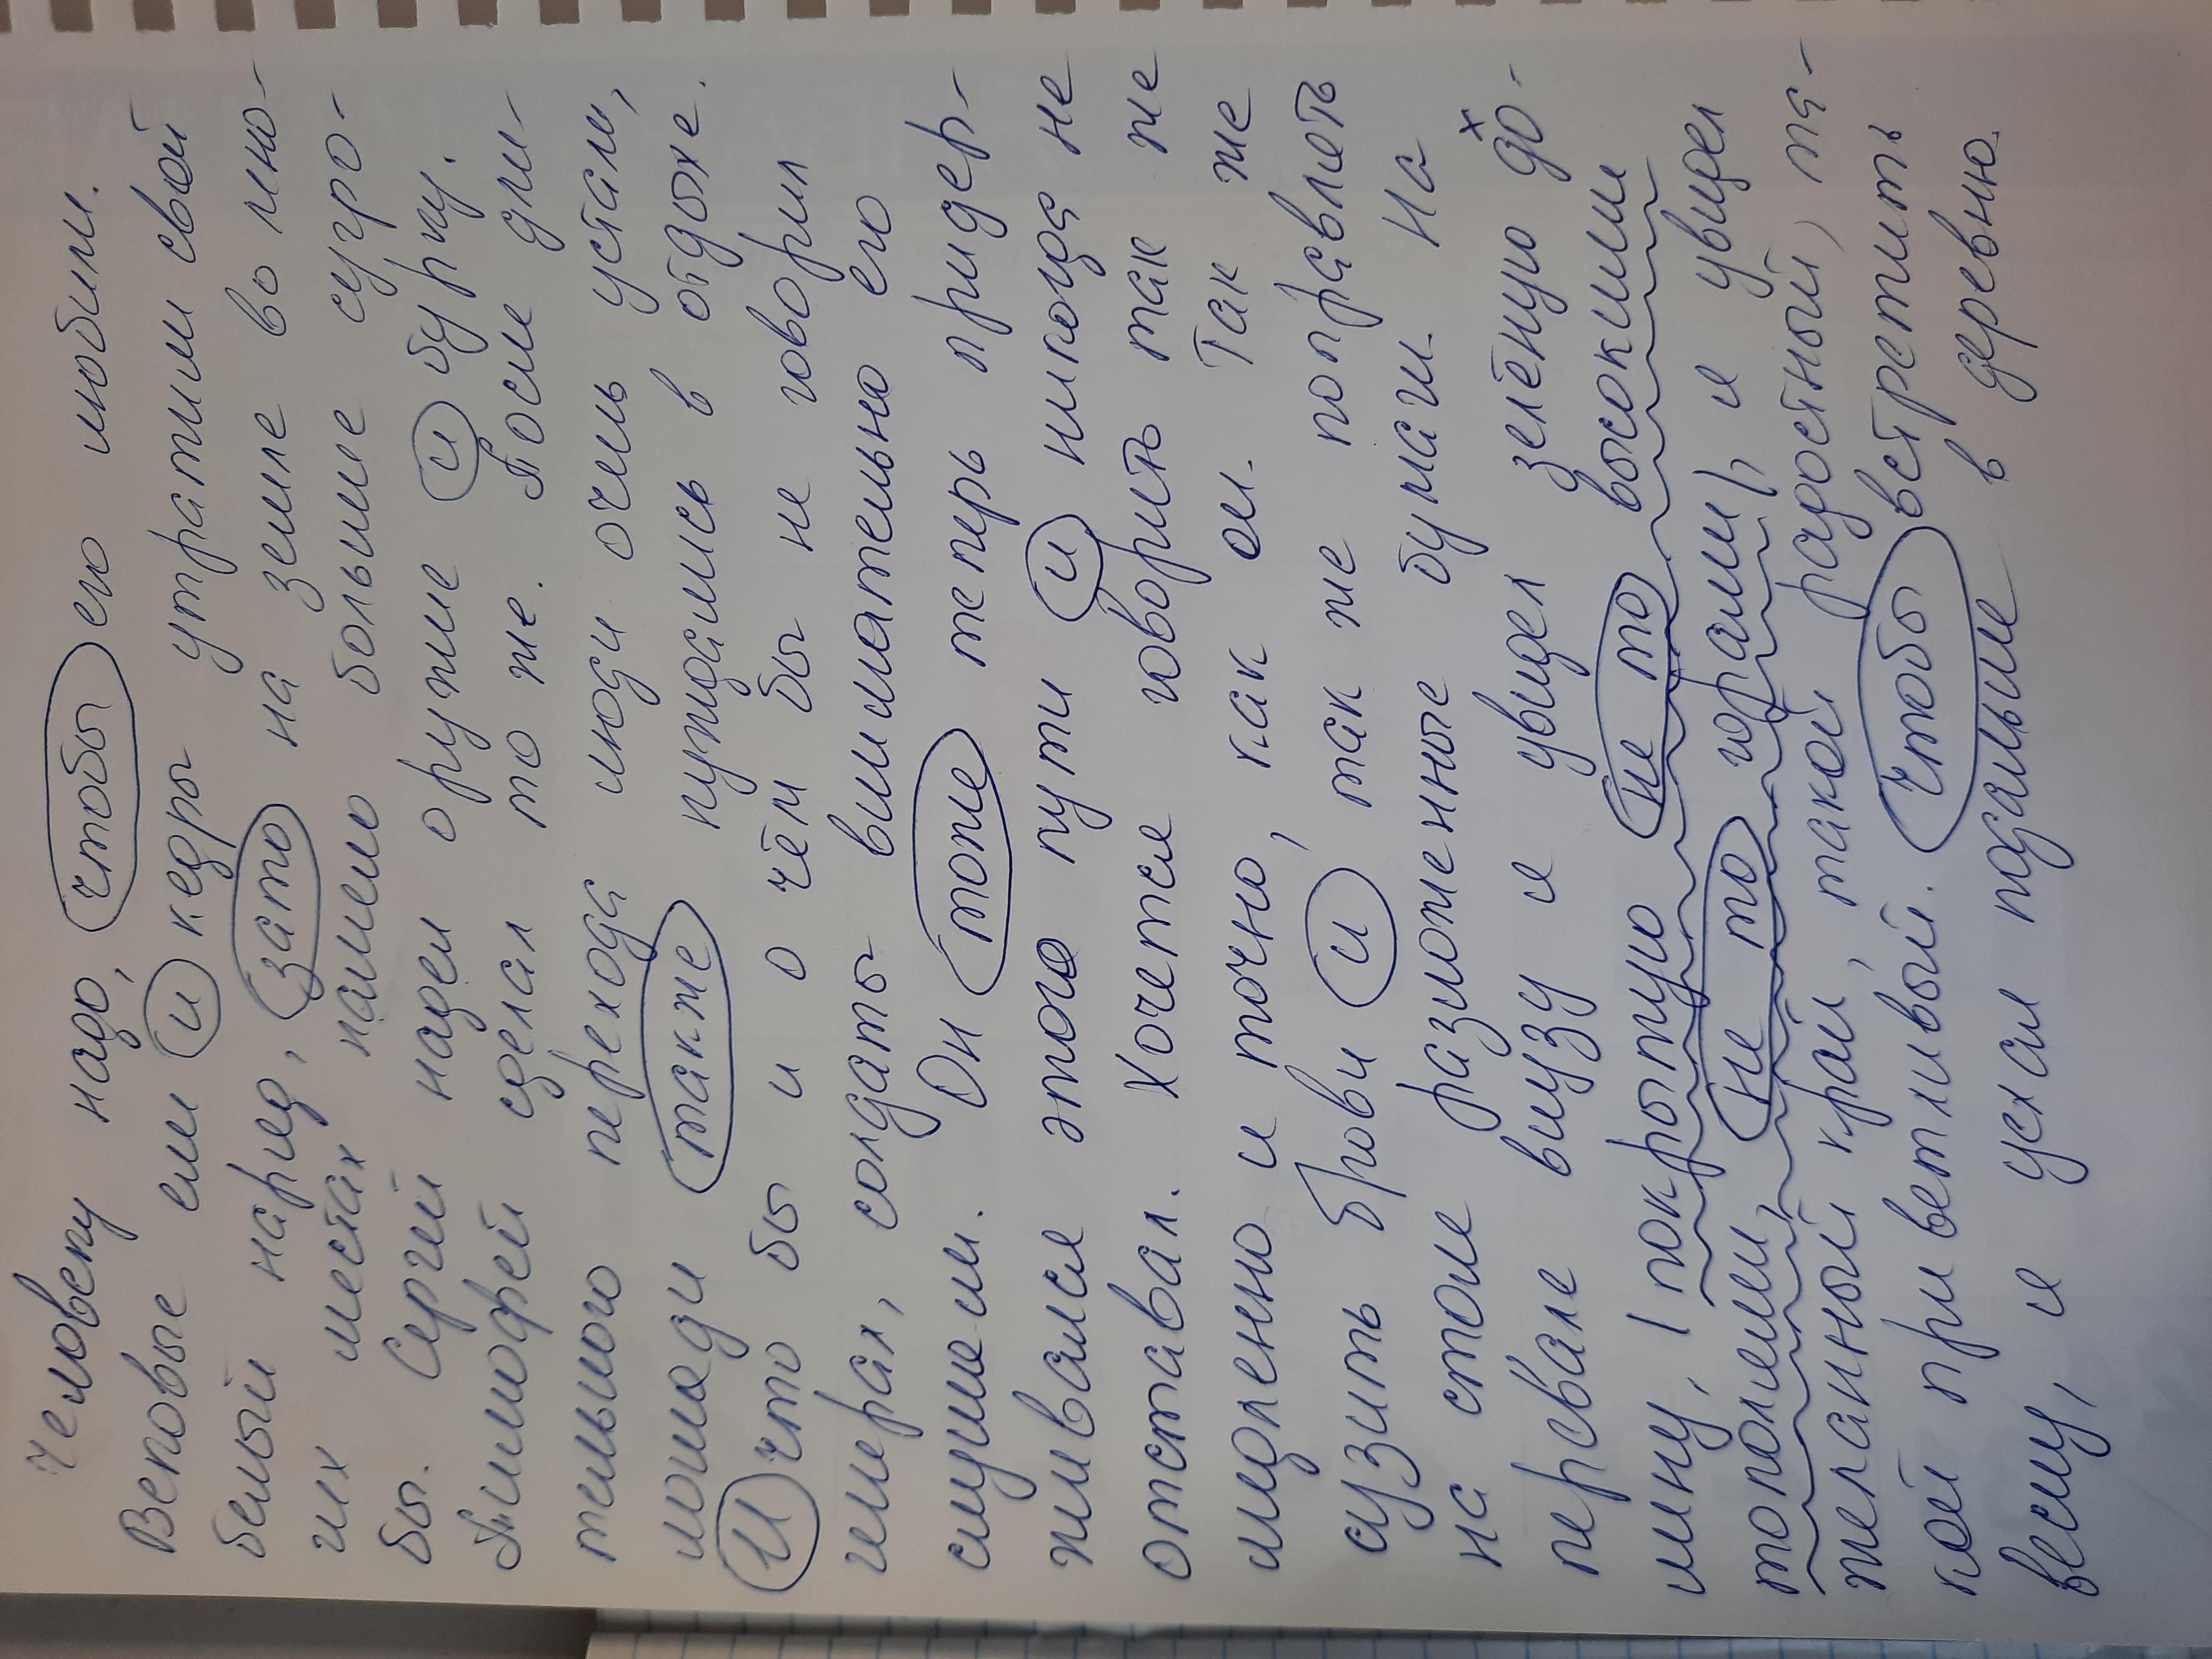 Человеку надо, чтобы его любили.
Вековые ели и кедры утратили свой
белый наряд, зато на земле во мно-
гих местах намело большие сугро-
бы. Сергей надел оружие и бурку.
Тимофей сделал то же. После дли-
тельного перехода люди очень устали,
лошади также нуждались в отдыхе.
И что бы и о чём бы не говорил
генерал, солдаты внимательно его
слушали. Он тоже теперь придер-
живался этого пути и никогда не
отставал. Хочется говорить так же
медленно и точно, как он. Так же
сузить брови и, так же поправлять
на столе разложенные бумаги. На
перевале внизу я увидел зелёную до-
лину, покрытую не то высокими
тополями, не то горами, и увидел
желанный край, такой радостный, та-
кой приветливый. Чтобы встретить
весну, я уехал подальше в деревню.